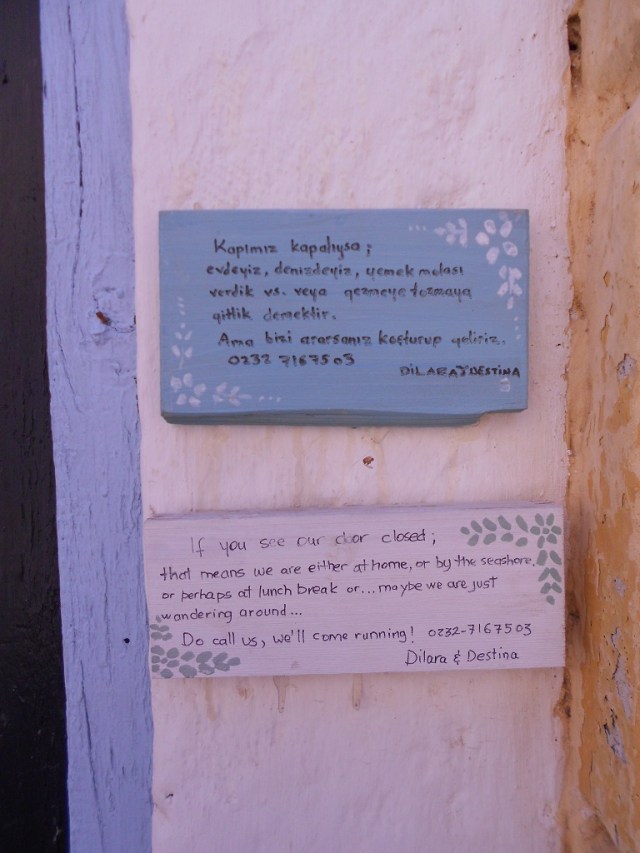 Kapımız kapalıysa;
evdeyiz, denizdeyiz, yemek molası
verdik vs. veya gezmeye tozmaya
gittik demektir.
Ama bizi ararsanız koşturup geliriz.
0232 7167503
DİLARA & DESTINA
If you see our door closed;
that means we are either at home, or by the seashore,
or perhaps at lunch break or...maybe we are just
wandering around...
Do call us, we'll come running! 0232-7167503
Dilara & Destina